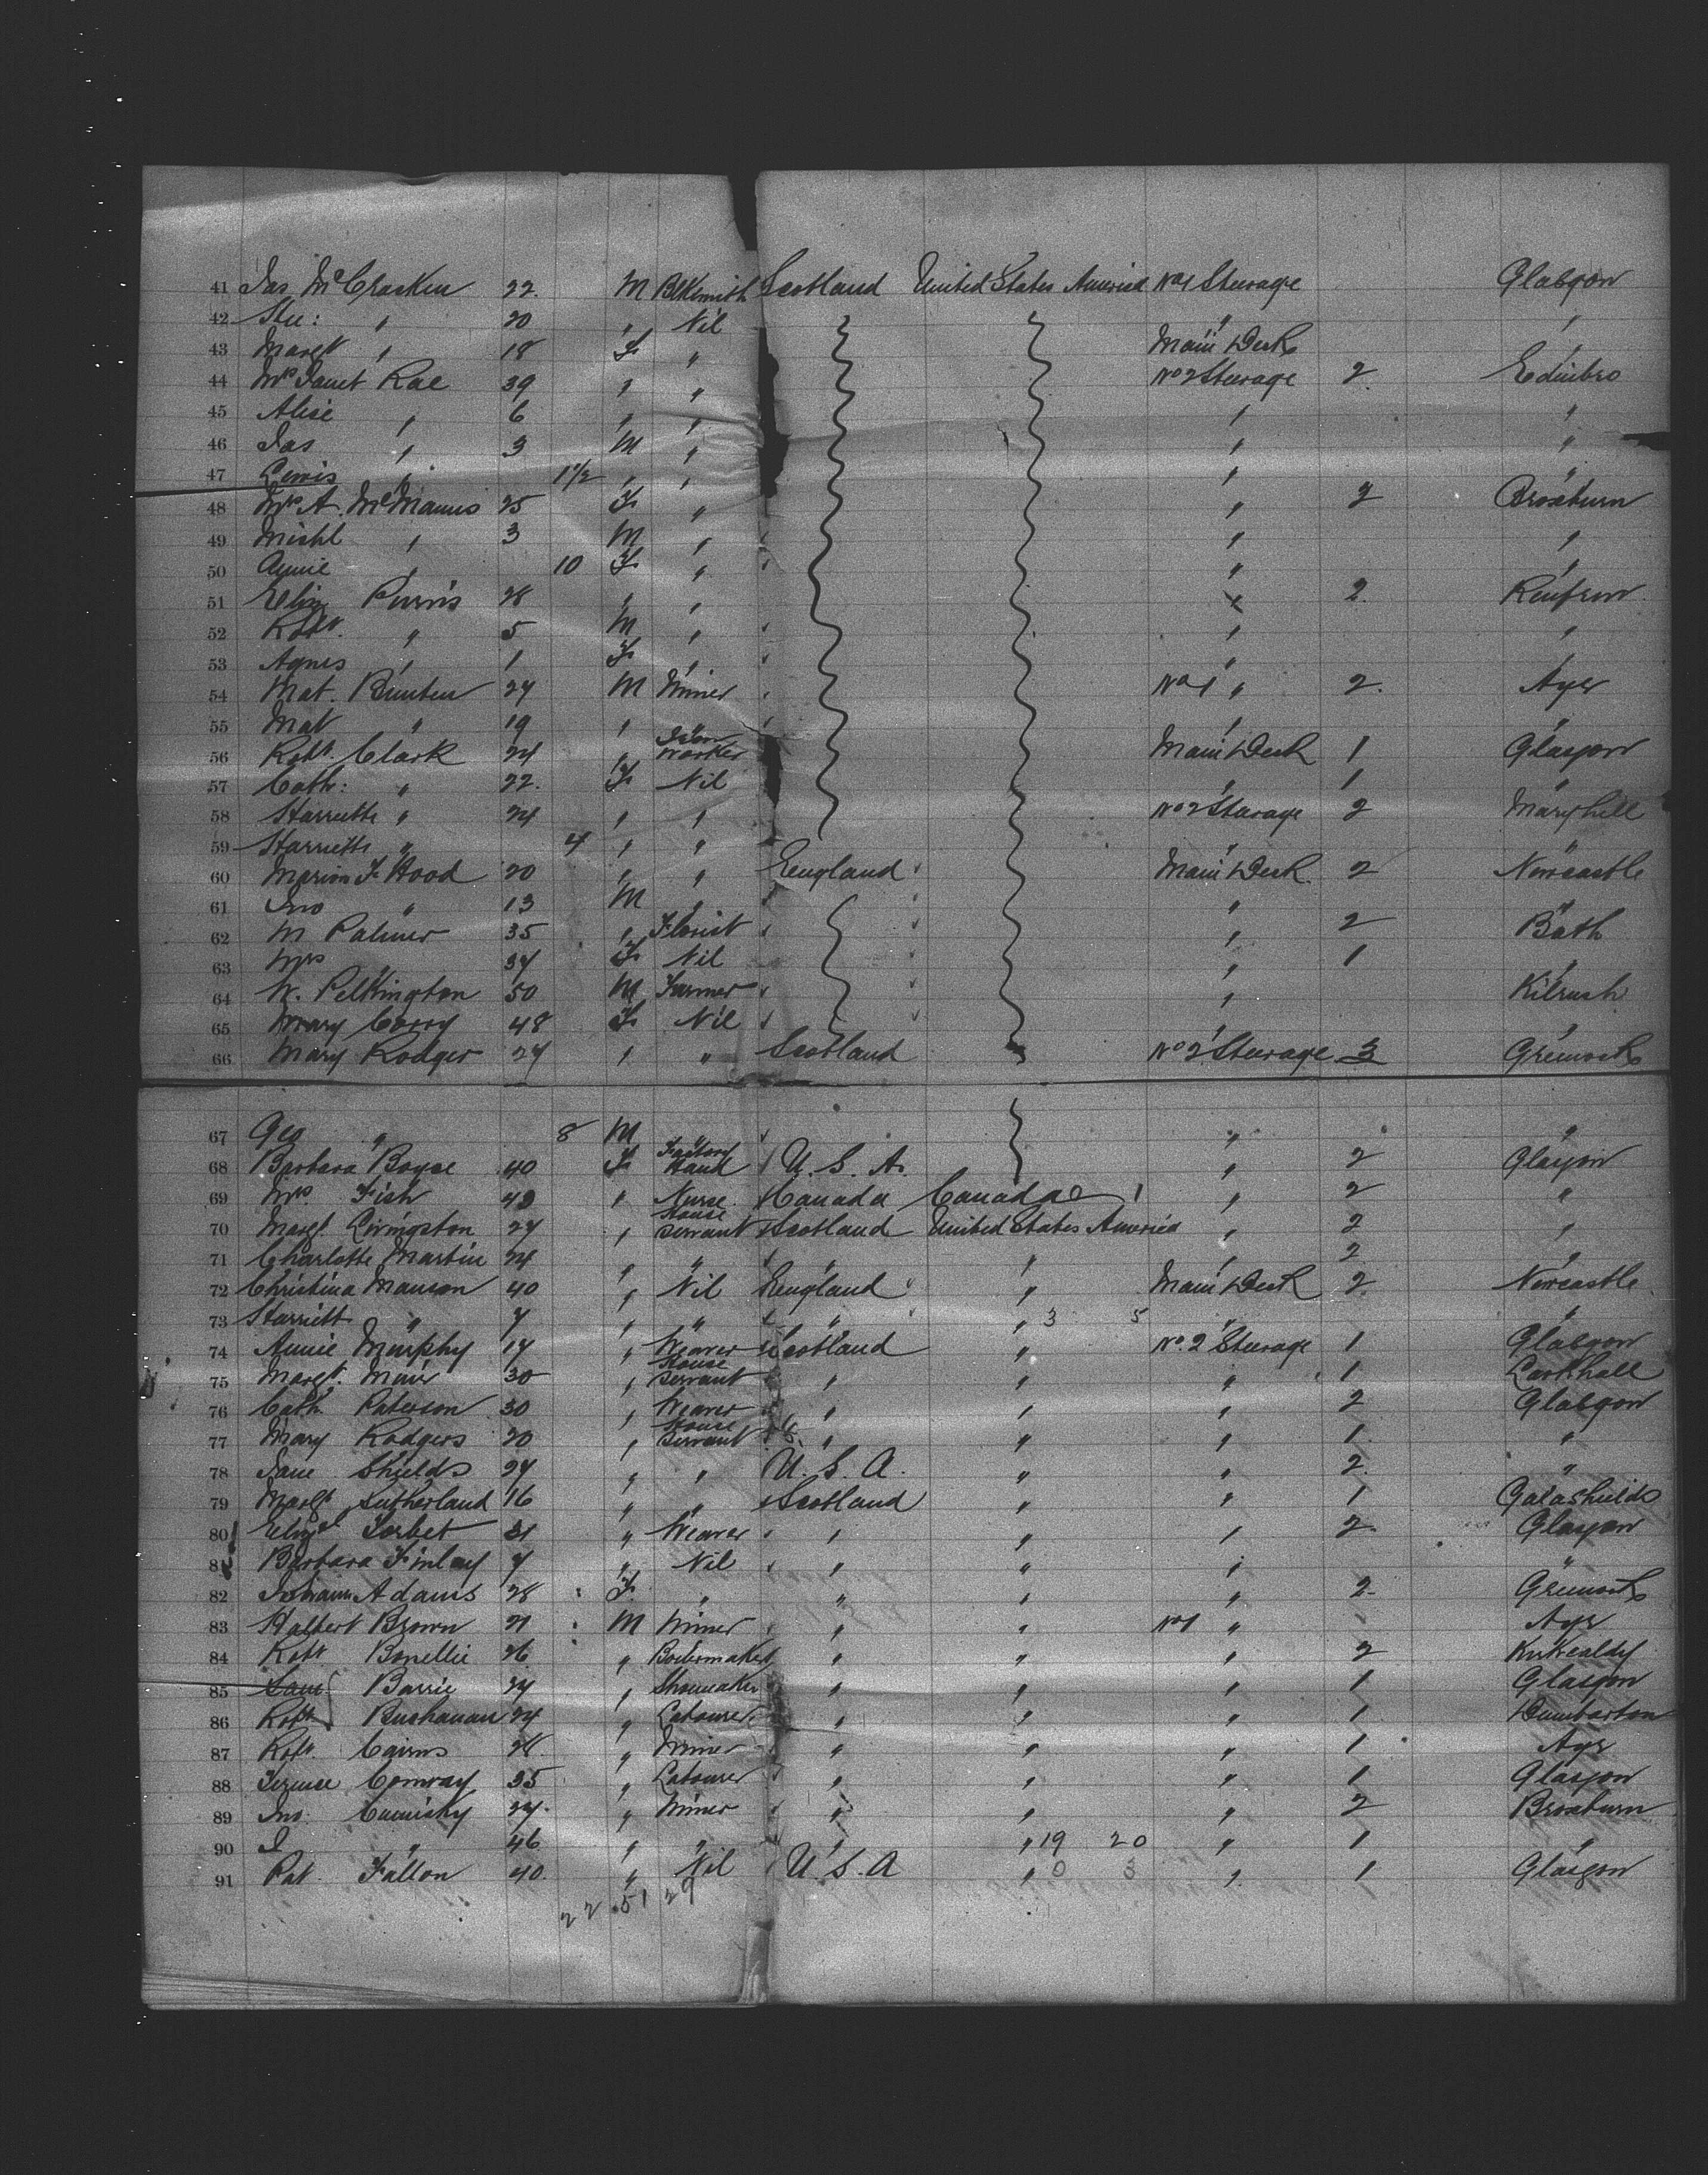 41 Jas McCracken 22. M Blksmith Scotland United States America No 1 Steerage Glasgow
42 " 20 " Nil " "
43 Margt " 18 F " Main Deck "
44 Mrs Janet Rae 39 " " No 2 Steerage 2. Edinbro
45 Alice " 6 " " " "
46 Jas " 3 M " " "
47 Lewis " 1 1/2 " " " "
48 Mrs A. McManus 25 F " " 2 Broxburn
49 Michl " 3 M " " "
50 Annie " 10 F " " "
51 Eliz Purvis 28 " " " 2. Renfrew
52 Robt. " 5 M " " "
53 Agnes " 1 F " " "
54 Mat. Bunten 24 M Miner No 1 " 2. Ayr
55 Mat " 19 " " " "
56 Robt. Clark 24 " Iron Worker Main Deck 1 Glasgow
57 Cath: " 22. F Nil " 1 "
58 Harriette " 24 " " No 2 Steerage 2 Maryhill
59 Harriette " 4 " " " "
60 Marion F Hood 20 " " England Main Deck 2 Newcastle
61 Jno " 13 M " " "
62 M Palmer 35 " Florist " 2 Bath
63 Mrs " 34 F Nil " 1 "
64 W. Pelkington 50 M Farmer " Kilrush
65 Mary Corry 48 F Nil " "
66 Mary Rodger 24 " " Scotland No 2 Steerage 3 Greenock
67 Geo " 8 M " " "
68 Barbara Boyce 40 F Factory Hand U. S. A. " 2 Glasgow
69 Mrs. Fish 43 " Nurse Canada Canada 1 " 2 "
70 Margt. Livingston 27 " House Servant Scotland United States America " 2 "
71 Charlotte Martin 24 " " " " " 2 "
72 Christina Manson 40 " Nil England " Main Deck 2. Newcastle
73 Harriett " 7 " " " " 3 5 " "
74 Annie Murphy 17 " Weaver Scotland " No. 2 Steerage 1 Glasgow
75 Margt. Muir 30 " House Servant " " " 1 Larkhall
76 Cath. Paterson 30 " Weaver " " " 2 Glasgow
77 Mary Rodgers 20 " House Servant " " " 1. "
78 Jane Shields 24 " " U. S. A. " " 2. "
79 Margt Sutherland 16 " " Scotland " " 1 Galashields
80 Elizth Torbet 31 " Weaver " " " 2. Glasgow
81 Barbara Finlay 7 " Nil " " " "
82 Adams 28 F. " " " " 2- Greenock
83 Halbert Brown 21 M Miner " " No 1 " Ayr
84 Robt Bonellie 26 " Boilermaker " " " 2 Kirkcaldy
85 Barrie 24 " Shoemaker " " " 1 Glasgow
86 Robt Buchanan 24 " Labourer " " " 1 Dumbarton
87 Robt. Cairns 28. " Miner " " " 1 Ayr
88 Terence Conway 35 " Labourer " " " 1 Glasgow
89 Jno. Cumisky 27. " Miner " " " 2 Broxburn
90 J " 46 " " " " 19 20 " 1 "
91 Pat. Fallon 40. " Nil U. S. A " 0 3 " 1 Glasgow
22 51 29